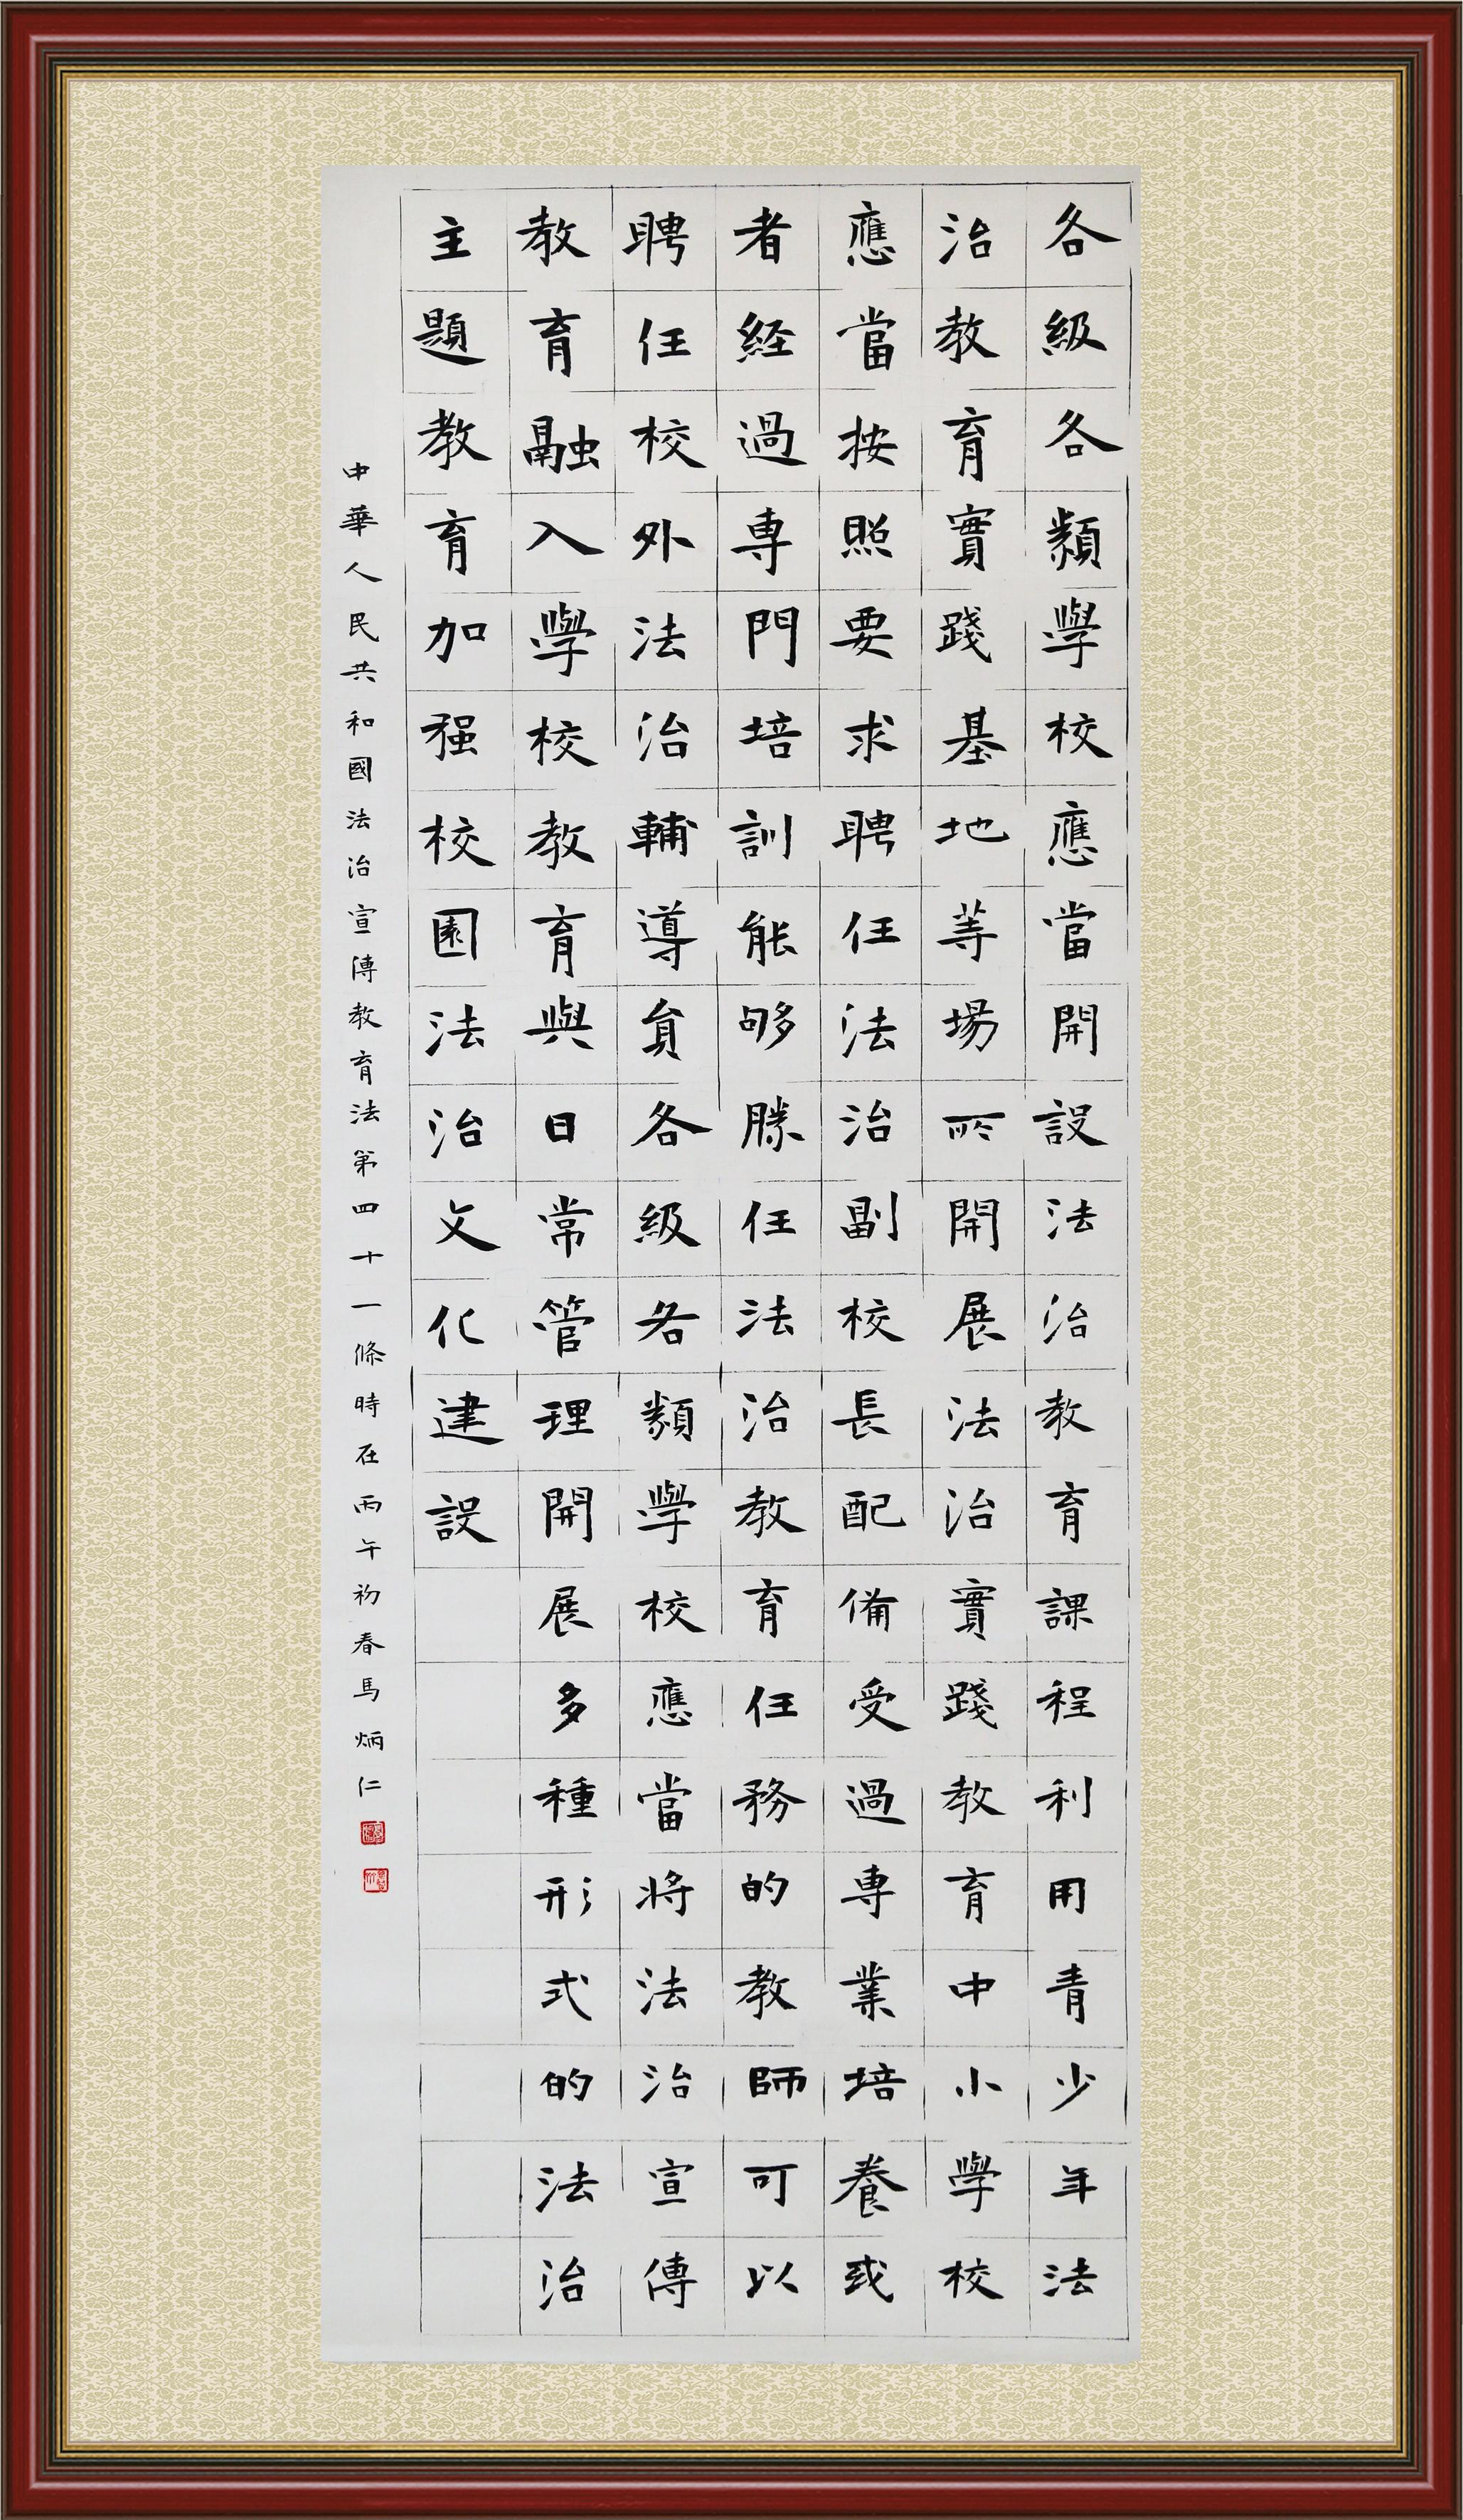 各級各類學校應當開設法治教育課程利用青少年法
治教育實踐基地等場所開展法治實踐教育中小學校
應當按照要求聘任法治副校長配備受過專業培養或
者経過專門培訓能够勝任法治教育任務的教師可以
聘任校外法治輔導員各級各類學校應當將法治宣傳
教育融入學校教育與日常管理開展多種形式的法治
主題教育加强校園法治文化建設
中華人民共和國法治宣傳教育法第四十一條時在丙午初春馬炳仁